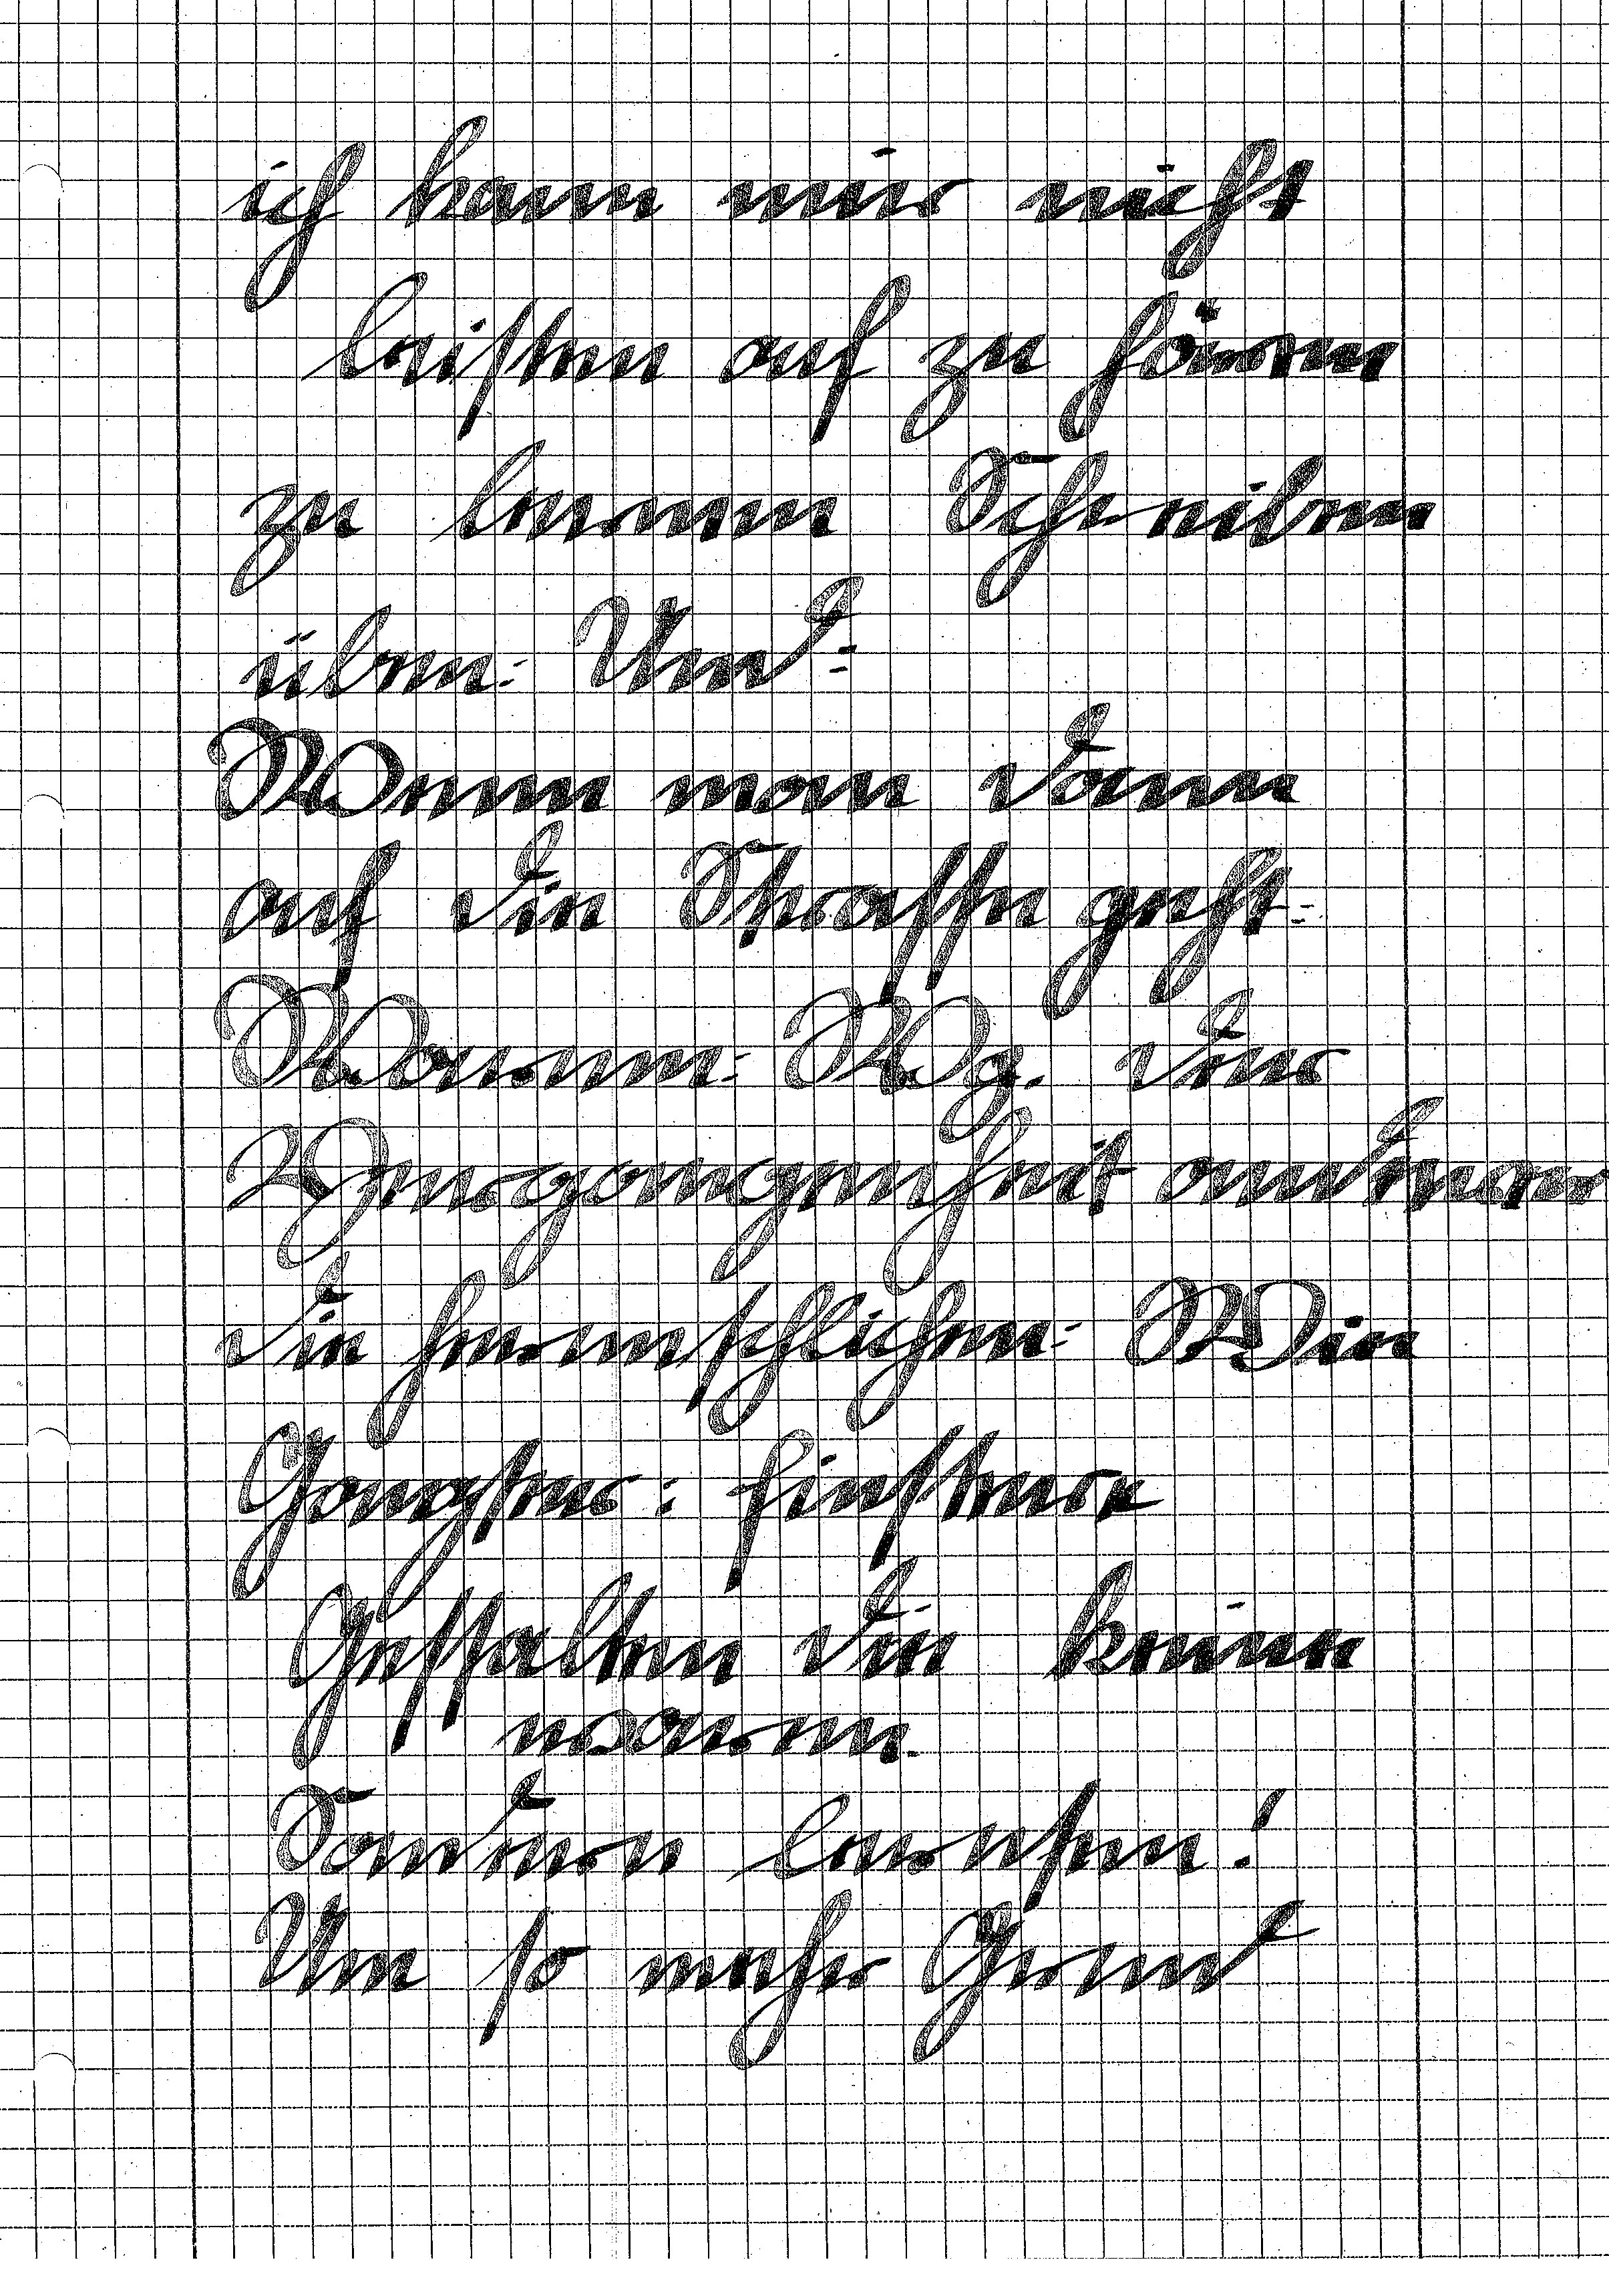 ich kann mir nicht
leisten auf zu hören
zu lernen Schreiben
üben: Und:
Wenn man dann
auf die Strasse geht:
Warum: Wg. der
Vergangenheit anderer
die herumschlichen: Wie
Gangster: finstere
Gestalten die keine
waren.
Um so mehr Grund